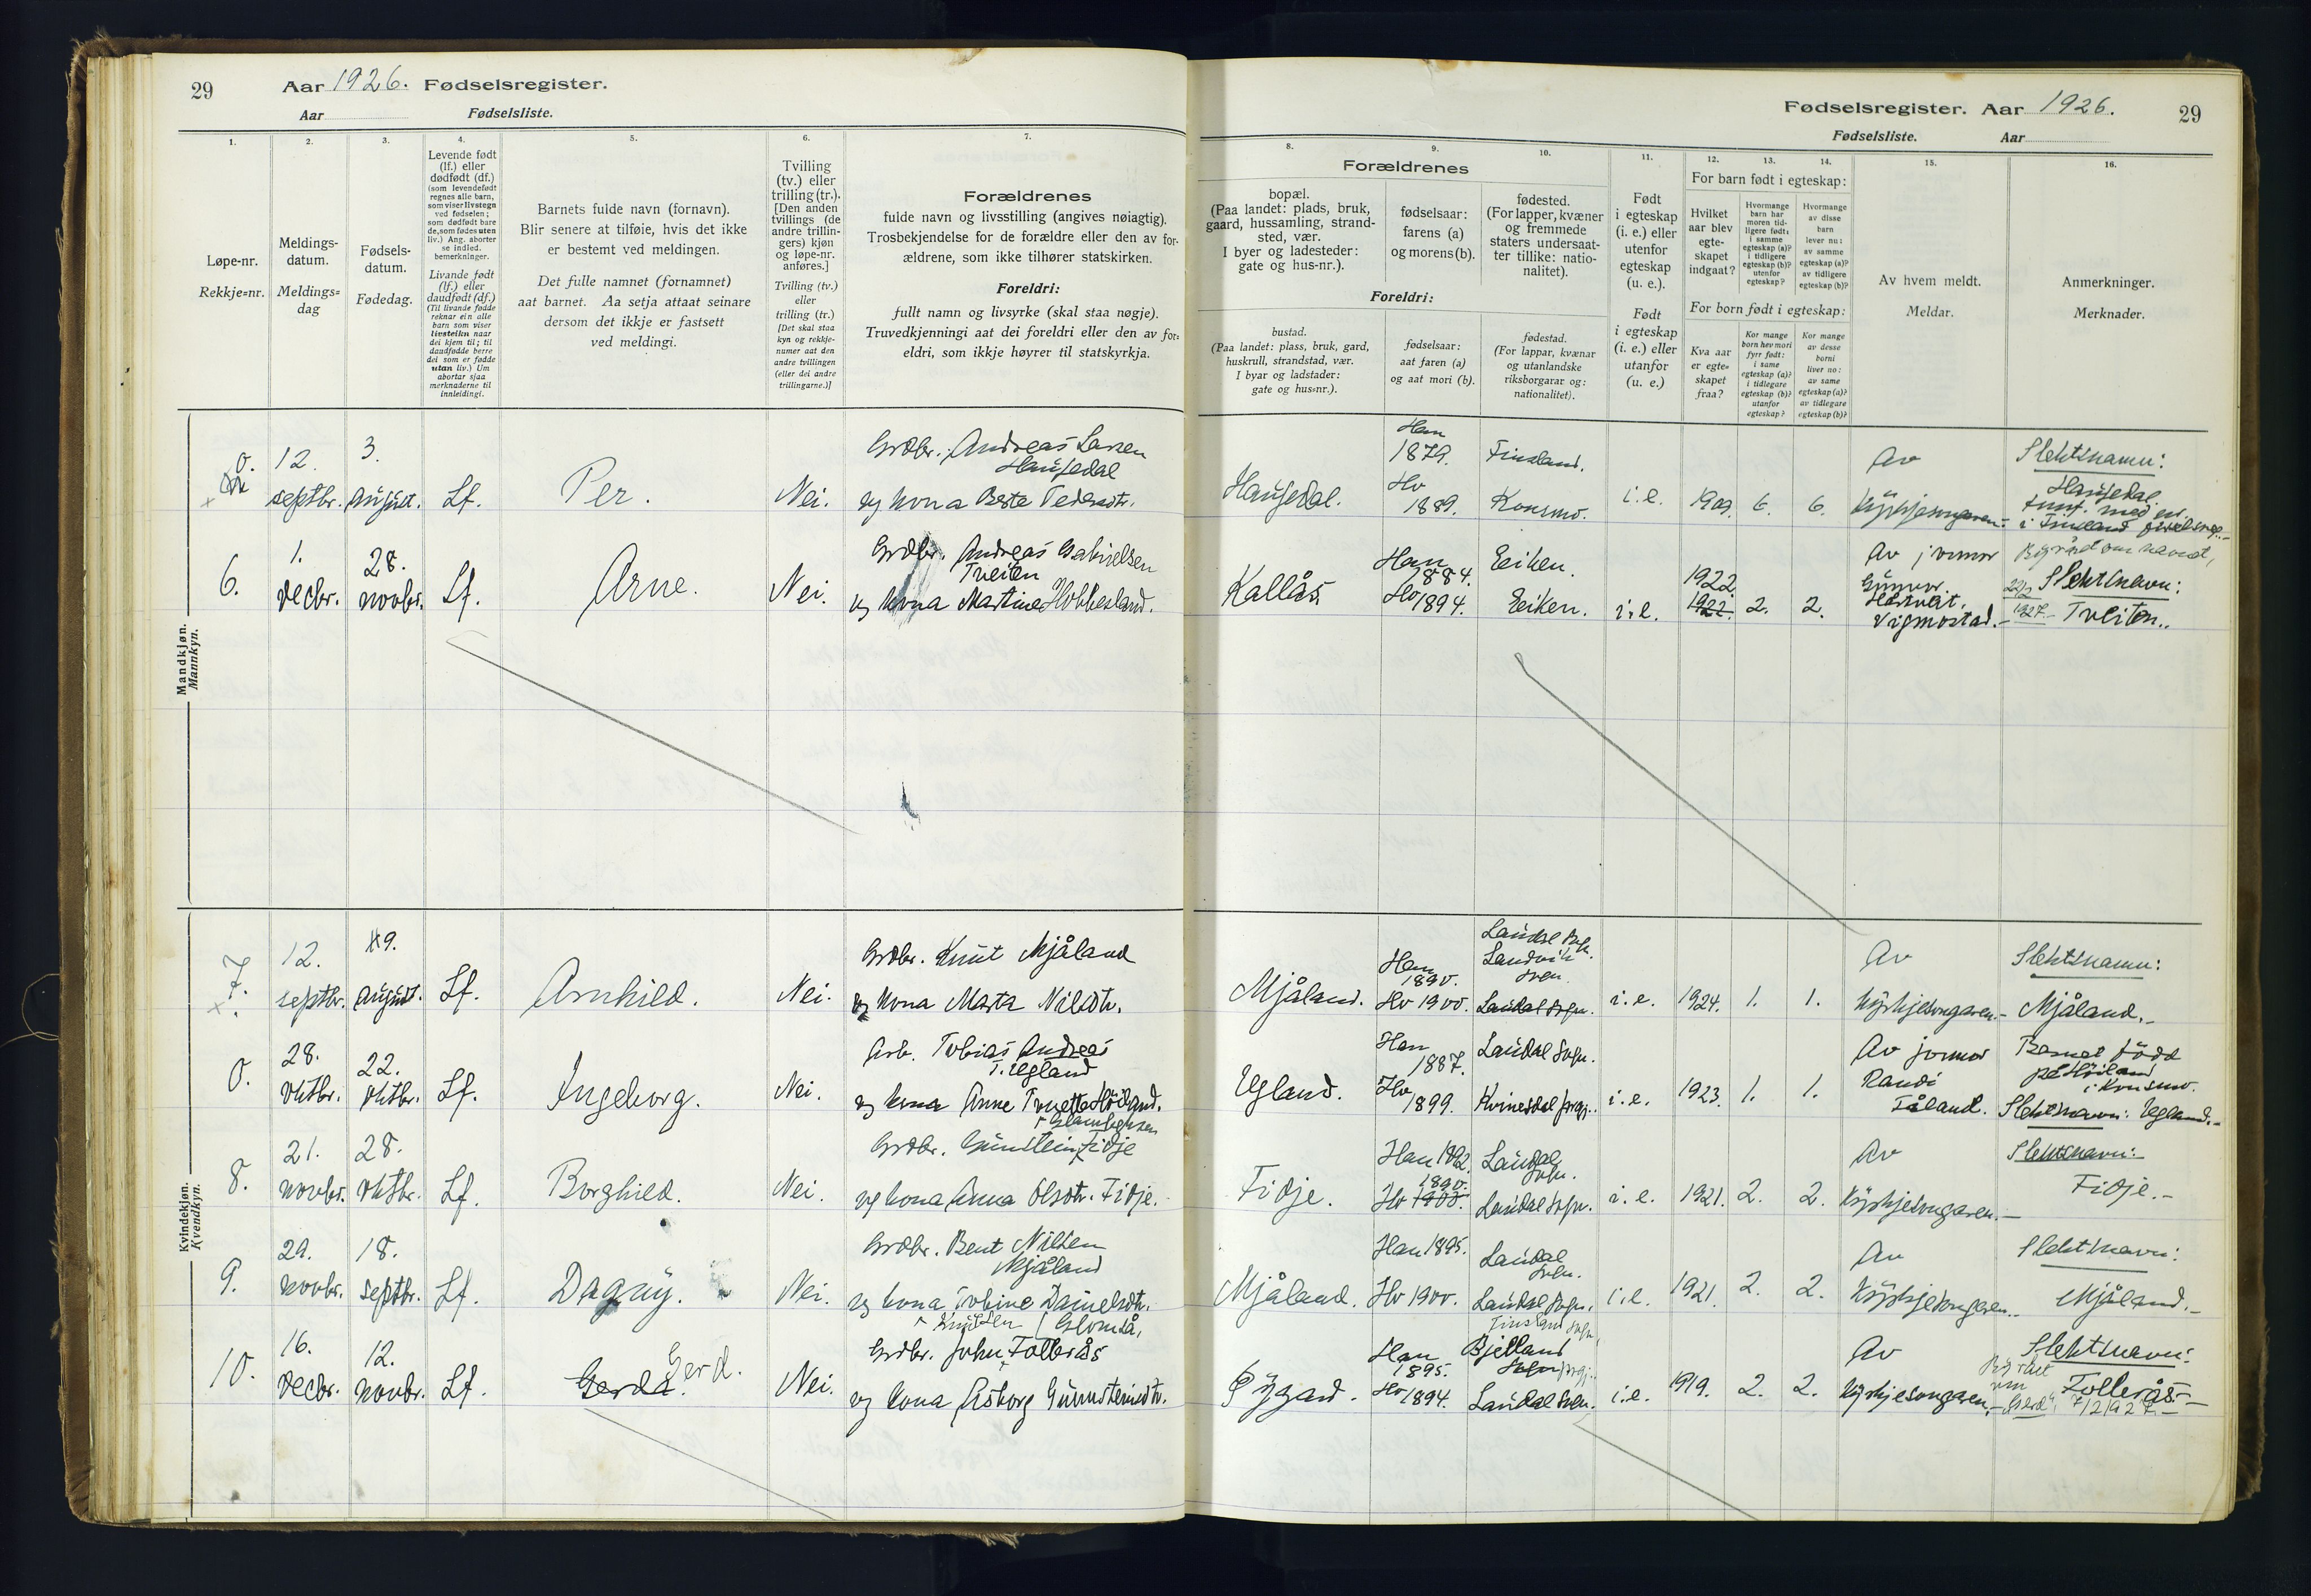 29
Aar 1926. Fødselsregister.
Aar
Fødselsliste.
1.
2.
3.
4.
5.
6.
7.
Løpe-nr.
Rekkje=nr.
Meldings-
datum.
Meldings=
dag
Fødsels-
datum.
Fødedag.
Levende født
(lf.) eller
dødfødt (df.)
(som levendefødt
regnes alle barn,
som viser livstegn
ved fødselen;
som dødfødt bare
de, som fødes uten
liv.) Ang. aborter
se indled.
bemerkninger.
Livande født
(lf.) eller
daudfødt (df.)
(Til livande fødde
reknar ein alle
barn som viser
livsteikn naar
dei kjem til; til
daudfødde berre
dei som er fødde
utan liv.) Um
abortar sjaa
merknaderne til
innleidingi.
Barnets fulde navn (fornavn).
Blir senere at tilføie, hvis det ikke
er bestemt ved meldingen.
Det fulle namnet (fornamnet)
aat barnet. Aa setja attaat seinare
dersom det ikkje er fastsett
ved meldingi.
Tvilling
(tv.) eller
trilling (tr.).
[Den anden
tvillings (de
andre trillin-
gers) kjøn
og løpe-nr.
anføres.]
Tvilling (tv.)
eller
trilling (tr.)
[Det skal staa
kyn og rekkje-
numer aat den
andre tvillingen
(eller dei andre
trillingarne.)]
Forældrenes
fulde navn og livsstilling (angives nøiagtig).
Trosbekjendelse for de forældre eller den av for-
ældrene, som ikke tilhører statskirken.
Foreldri:
fullt namn og livsyrke (skal staa nøgje).
Truvedkjenningi aat dei foreldri eller den av for=
eldri, som ikkje høyrer til statskyrkja.
Mandkjøn.
Mannkyn.
0.
12.
septbr.
3.
august.
Lf.
Per.
Nei.
Grdbr. Andreas Larsen
Haugedal
og kona Berte Pedersdtr.
6.
1.
decbr.
28.
novbr.
Lf.
Arne.
Nei.
Grdbr. Andreas Gabrielsen
Tveiten
og kona Martine Hobbesland.
Kvindekjøn.
Kvendkyn.
7.
12.
septbr.
9.
august.
Lf.
Arnhild.
Nei.
Grdbr. Knut Mjåland
og kona Marta Nilsdtr.
0.
28.
oktbr.
22.
oktbr.
Lf.
Ingeborg.
Nei.
Arb. Tobias Andreas
T. Ugland
og kona Anne Tonette Höiland.
8.
21.
novbr.
28.
oktbr.
Lf.
Borghild.
Nei.
Grdbr. Gunstein Fidje
og kona Anna Olsdtr. Fidje.
9.
29.
novbr.
18.
septbr.
Lf.
Dagny.
Nei.
Grdbr. Bent Nilsen
Mjåland
og kona Tobine Danielsdtr.
Knutsen Glomså,
10.
16.
decbr.
12.
novbr.
Lf.
Gerda. Gerd.
Nei.
Grdbr. John Follerås
og kona Asborg Gunnsteinsdtr.
Fødselsregister. Aar 1926.
29
Fødselsliste.
Aar
8.
9.
10.
11.
12.
13.
14.
15.
16.
Forældrenes
bopæl.
(Paa landet: plads, bruk,
gaard, hussamling, strand-
sted, vær.
I byer og ladesteder:
gate og hus-nr.).
fødselsaar:
farens (a)
og morens (b).
fødested.
(For lapper, kvæner
og fremmede
staters undersaat-
ter tillike: natio-
nalitet).
Foreldri:
bustad.
(Paa landet: plass, bruk, gard,
huskrull, strandstad, vær.
I byar og ladstader:
gate og hus=nr.).
fødselsaar:
aat faren (a)
og aat mori (b).
fødestad.
(For lappar, kvænar
og utanlandske
riksborgarar og:
nationalitet).
Født
i egteskap
(i. e.) eller
utenfor
egteskap
(u. e.).
Født
i egteskap
(i. e.) eller
utanfor
(u. e.)
For barn født i egteskap:
Hvilket
aar blev
egte-
skapet
indgaat?
Hvormange
barn har
moren tid-
ligere født:
i samme
egteskap (a)?
i tidligere
egteskap (b)?
utenfor
egteskap?
Hvormange
av disse
barn
lever nu:
av samme
egteskap (a)?
av tidligere
egteskap (b)?
For born født i egteskap:
Kva aar
er egte=
skapet
fraa?
Kor mange
born hev mori
fyrr født:
i same
egteskap (a)?
i tidlegare
egteskap (b)?
utanfor
egteskap?
Kor mange
av desse
borni
liver no:
av same
egteskap (a)?
av tidlegare
egteskap (b)?
Av hvem meldt.
Meldar.
Anmerkninger.
Merknader.
Haugedal.
Han
1879.
Ho
1889.
Finsland.
Konsmo.
i. e.
1909.
6.
6.
Av
Kyrkjesongaren.
Slektsnamn:
Haugedal.
Kallås.
Han
1884.
Ho 1894.
Eiken.
Eiken.
i. e.
1922.
1922.
2.
2.
Av jormor
Vigmostad.
Slektsnavn:
1927.
Tveiten.
Mjåland.
Han
1890.
Ho 1900.
Laudal sokn.
Landvik
sokn.
Laudal sokn.
i. e.
1924.
1.
1.
Av
Kyrkjesongaren.
Slektsnamn:
Mjåland.
Ugland.
Han
1887.
Ho
1899.
Laudal sokn.
Kvinesdal prgj.
i. e.
1923.
1.
1.
Av jormor
Randi
Tåland.
Barnet född
på Höiland
i Konsmo.
Slektsnavn: Ugland.
Fidje.
Han 1892.
1890.
Ho 1900.
Laudal
sokn.
Laudal sokn.
i. e.
1921.
2.
2.
Av
Kyrkjesongaren.
Slektsnavn:
Fidje.
Mjåland.
Han 1895.
Ho 1900.
Laudal
sokn.
Laudal sokn.
i. e.
1921.
2.
2.
Av
Kyrkjesongaren.
Slektsnavn:
Mjåland.
Han
1895.
Ho 1894.
Finsland sokn,
Bjelland
prgj.
Laudal sokn.
i. e.
1919.
2.
2.
Av
Kyrkjesongaren.
Slektsnavn:
Follerås.
"Gerd", 7/2 1927.